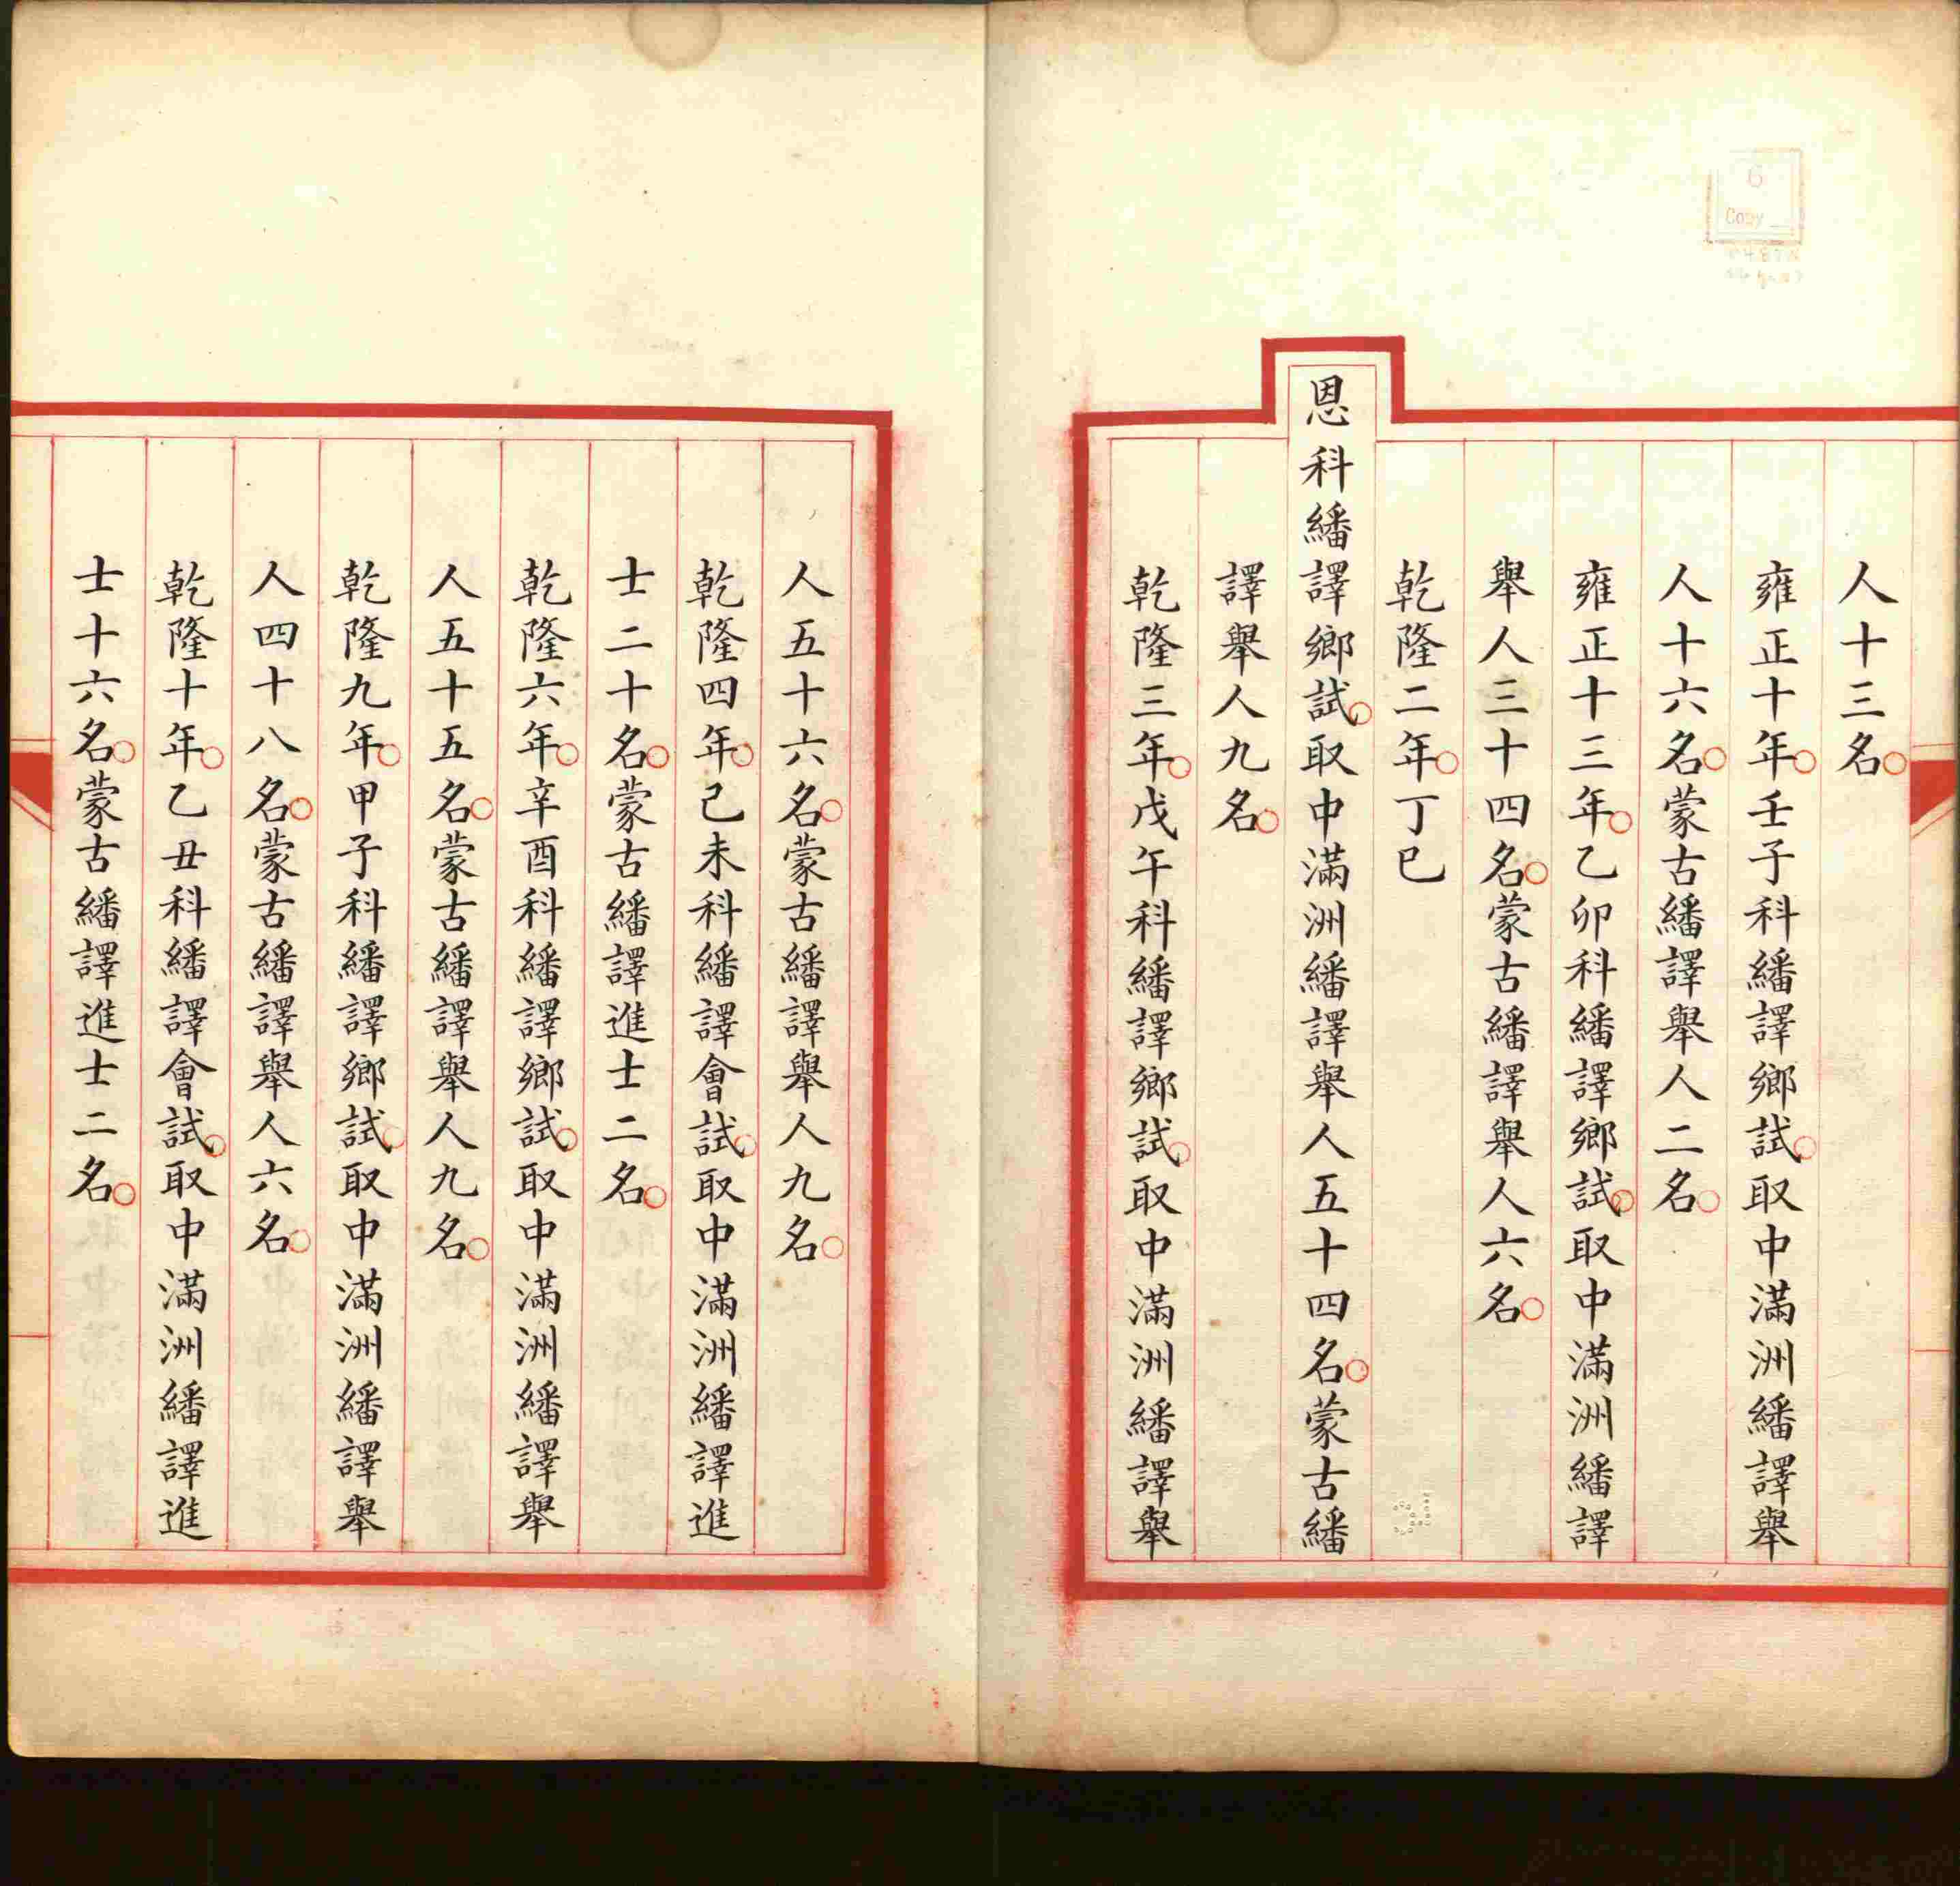 人十三名
雍正十年壬子科繙譯鄉試取中滿洲繙譯舉
人十六名蒙古繙譯舉人二名
雍正十三年乙卯科繙譯鄉試取中滿洲繙譯
舉人三十四名蒙古繙譯舉人六名
乾隆二年丁巳
恩科繙譯鄉試取中滿洲繙譯舉人五十四名蒙古繙
譯舉人九名
乾隆三年戊午科繙譯鄉試取中滿洲繙譯舉
人五十六名蒙古繙譯舉人九名
乾隆四年己未科繙譯會試取中滿洲繙譯進
士二十名蒙古繙譯進士二名
乾隆六年辛酉科繙譯鄉試取中滿洲繙譯舉
人五十五名蒙古繙譯舉人九名
乾隆九年甲子科繙譯鄉試取中滿洲繙譯舉
人四十八名蒙古繙譯舉人六名
乾隆十年乙丑科繙譯會試取中滿洲繙譯進
士十六名蒙古繙譯進士二名
6
Copy